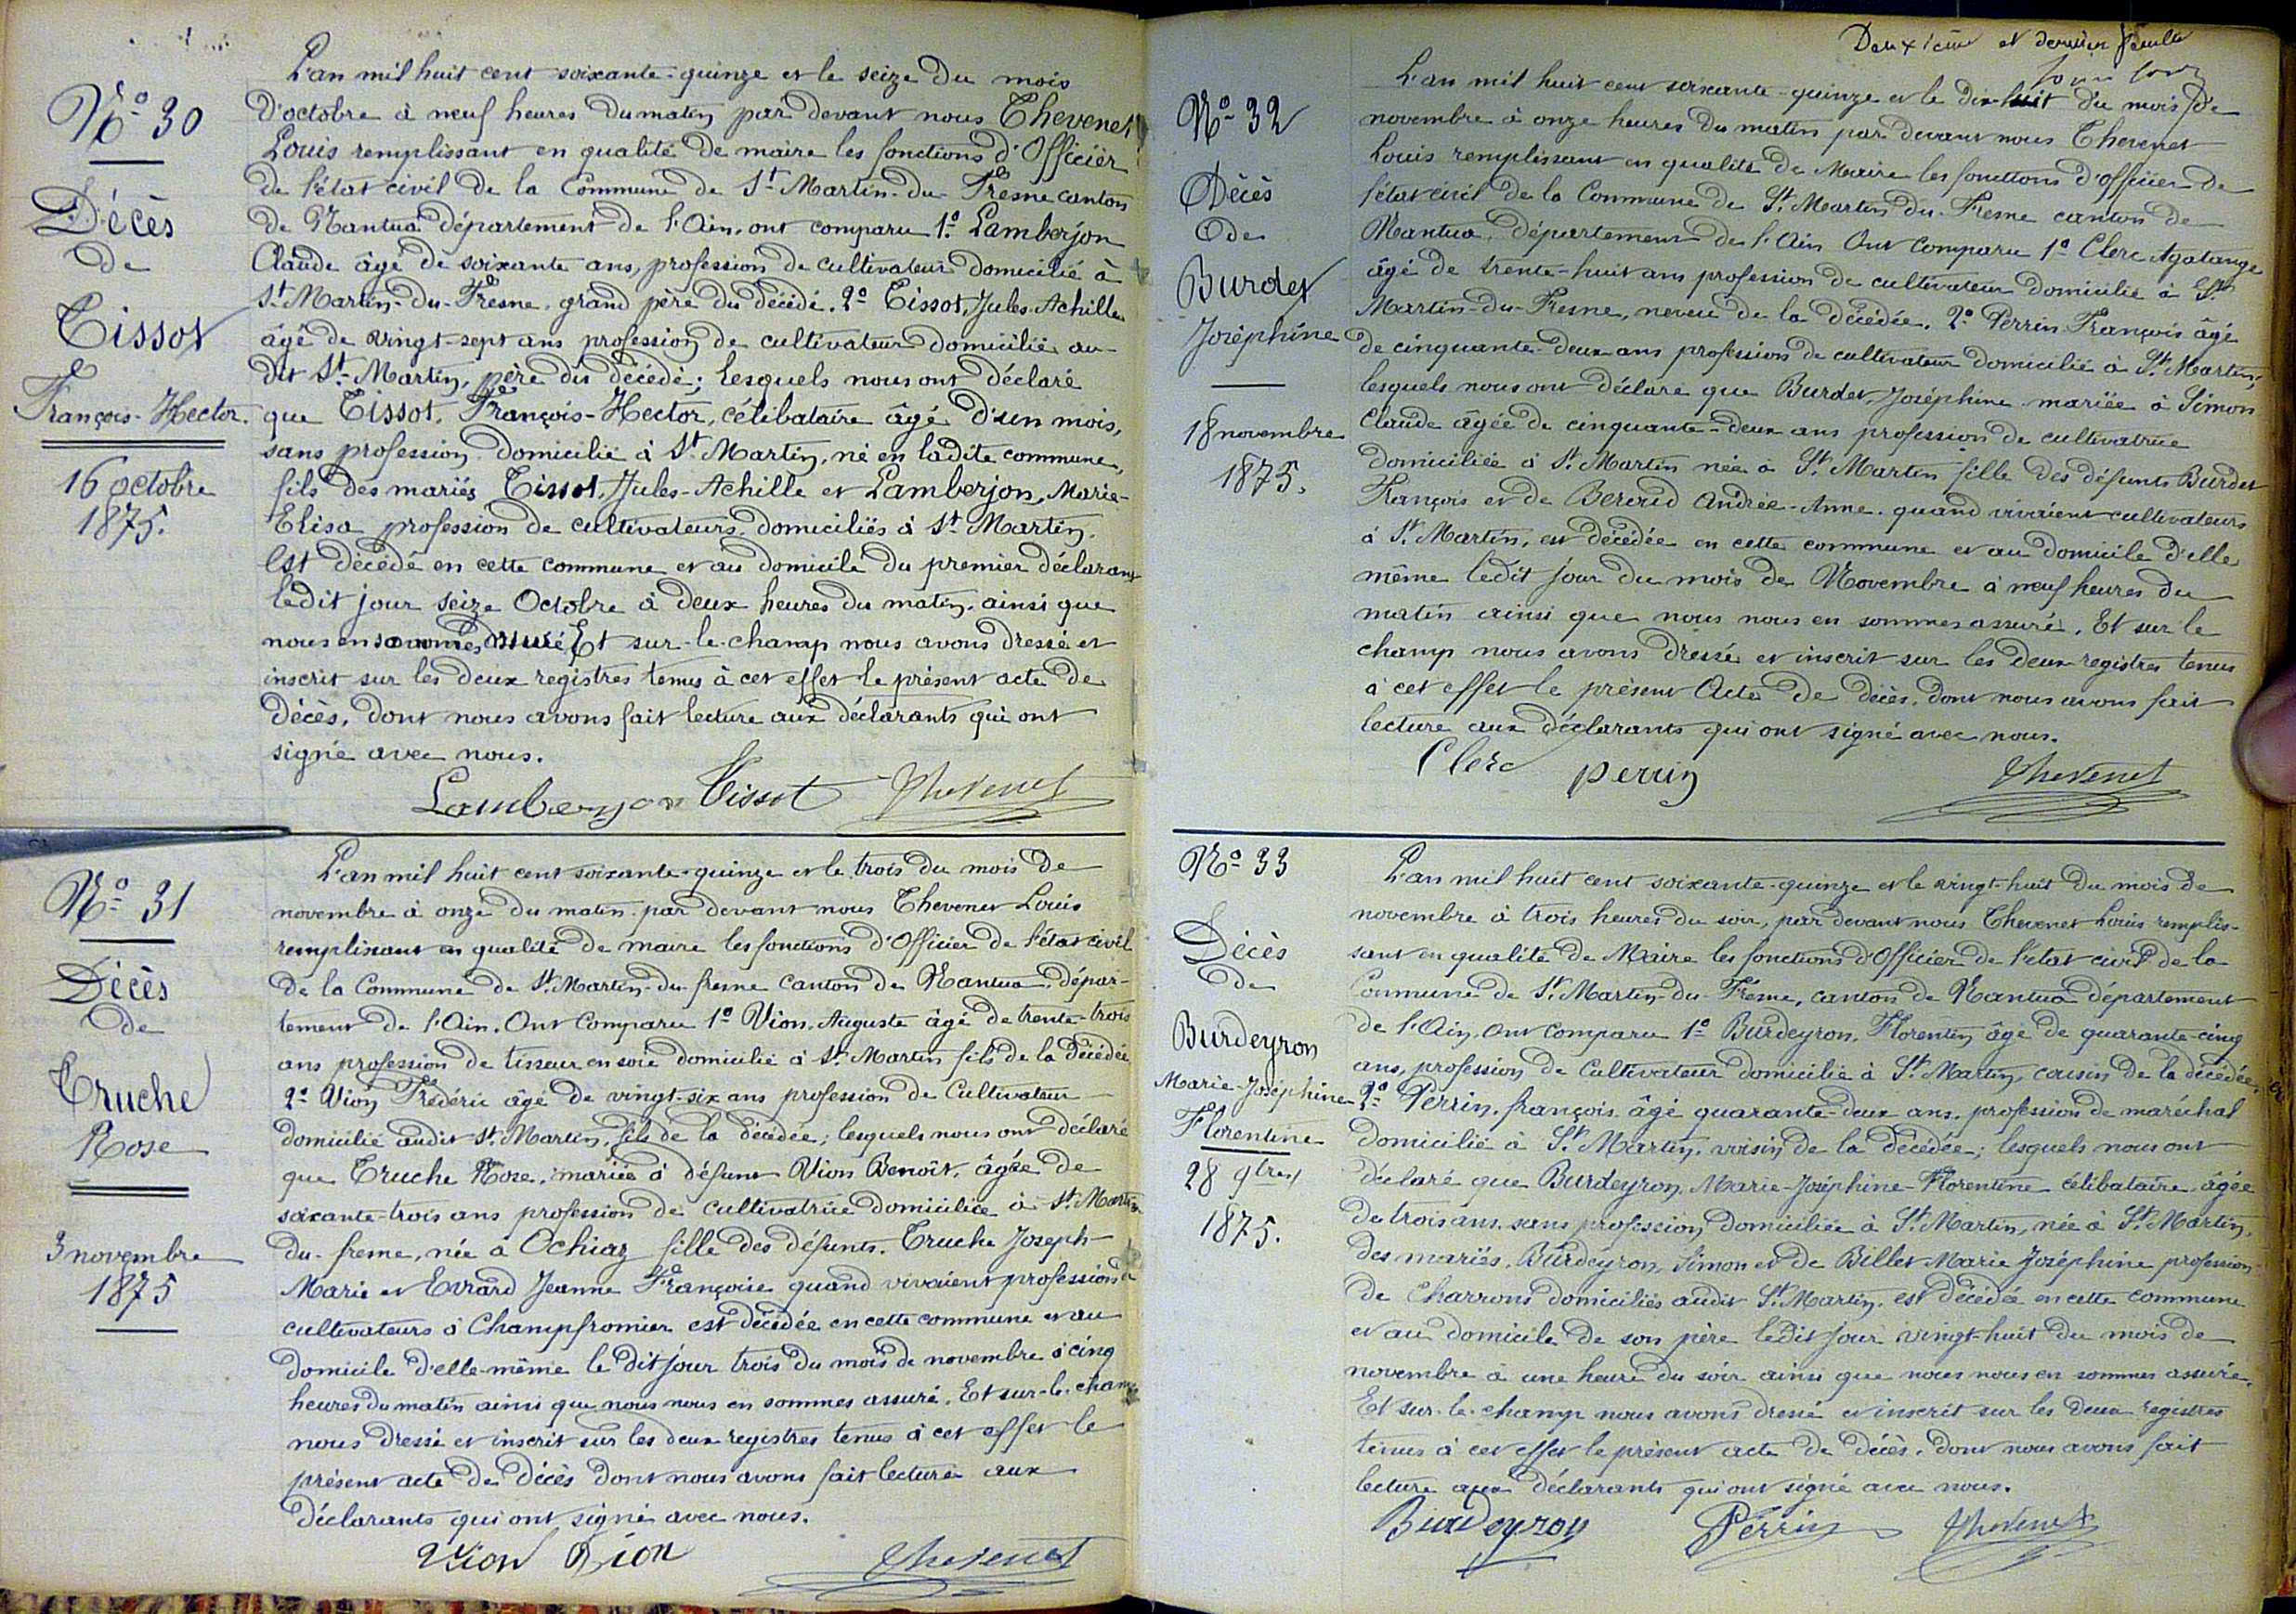 N° 30
Décès
de
Tissot
François-Hector.
16 octobre
1875.
L'an mil huit cent soixante-quinze et le seize du mois
d'octobre à neuf heures du matin par devant nous Thevenet
Louis remplissant en qualité de maire les fonctions d'Officier
de l'état civil de la Commune de St Martin-du-Fresne canton
de Nantua département de l'Ain, ont comparu 1° Lamberjon
Claude âgé de soixante ans, profession de cultivateur domicilié à
St Martin-du-Fresne, grand père du décédé. 2° Tissot, Jules-Achille
âgé de vingt-sept ans profession de cultivateur domicilié au-
dit St Martin, père du décédé; lesquels nous ont déclaré
que Tissot, François-Hector, célibataire âgé d'un mois,
sans profession domicilié à St Martin, né en ladite commune,
fils des mariés Tissot, Jules-Achille et Lamberjon, Marie-
Elisa profession de cultivateurs domiciliés à St Martin.
Est décédé en cette commune et au domicile du premier déclarant
ledit jour seize Octobre à deux heures du matin, ainsi que
nous en sommes assuré Et sur-le-champ nous avons dressé et
inscrit sur les deux registres tenus à cet effet le présent acte de
décès, dont nous avons fait lecture aux déclarants qui ont
signé avec nous.
Lamberjon Tissot Thevenet
N° 31
Décès
de
Truche
Rose
3 novembre
1875
L'an mil huit cent soixante-quinze et le trois du mois de
novembre à onze du matin par devant nous Thevenet Louis
remplissant en qualité de maire les fonctions d'Officier de l'état civil
de la Commune de St Martin-du-fresne canton de Nantua, dépar-
tement de l'Ain. Ont comparu 1° Vion, Auguste âgé de trente-trois
ans profession de tisseur en soie domicilié à St Martin fils de la décédée
2° Vion Frédéric âgé de vingt-six ans profession de Cultivateur
domicilié audit St Martin, fils de la décédée; lesquels nous ont déclaré
que Truche Rose, mariée à défunt Vion Benoît, âgée de
soixante-trois ans profession de cultivatrice domiciliée à St Martin
du-fresne, née à Ochiaz fille des défunts. Truche Joseph-
Marie et Evrard Jeanne Françoise quand vivaient profession de
cultivateurs à Champfromier est décédée en cette commune et au
domicile d'elle-même le dit jour trois du mois de novembre à cinq
heures du matin ainsi que nous nous en sommes assuré. Et sur-le-champ
nous dressé et inscrit sur les deux registres tenus à cet effet le
présent acte de décès dont nous avons fait lecture aux
déclarants qui ont signé avec nous.
Vion Vion Thevenet
Deuxième et dernier feuille
N° 32
Décès
de
Burdet
Joséphine
18 novembre
1875.
L'an mil huit cent soixante-quinze et le dix-huit du mois de
novembre à onze heures du matin par devant nous Thevenet
Louis remplissant en qualité de Maire les fonctions d'officier de
l'état civil de la Commune de St Martin-du-Fresne canton de
Nantua, département de l'Ain Ont comparu 1° Clerc Agatange
âgé de trente-huit ans profession de cultivateur domicilié à St
Martin-du-Fresne, neveu de la décédée. 2° Perrin François âgé
de cinquante-deux ans profession de cultivateur domicilié à St Martin,
lesquels nous ont déclaré que Burdet, Joséphine mariée à Simon
Claude âgée de cinquante-deux ans profession de cultivatrice
domiciliée à St Martin née à St Martin fille des défunts Burdet
François et de Beroud Andrée-Anne, quand vivaient cultivateurs
à St Martin, est décédée en cette commune et au domicile d'elle
même ledit jour du mois de Novembre à neuf heures du
matin ainsi que nous nous en sommes assuré. Et sur le
champ nous avons dressé et inscrit sur les deux registres tenus
à cet effet le présent Acte de décès, dont nous avons fait
lecture aux déclarants qui ont signé avec nous.
Clerc perrin Thevenet
N° 33
Décès
de
Burdeyron
Marie-Joséphine
Florentine
28 9bre
1875.
L'an mil huit cent soixante-quinze et le vingt-huit du mois de
novembre à trois heures du soir, par devant nous Thevenet Louis remplis-
sant en qualité de Maire les fonctions d'Officier de l'état civil de la
Commune de St Martin-du-Fresne, canton de Nantua département
de l'Ain, ont comparu 1° Burdeyron, Florentin âgé de quarante-cinq
ans, profession de Cultivateur domicilié à St Martin, cousin de la décédée,
2° Perrin, françois âgé quarante-deux ans, profession de maréchal
domicilié à St Martin, voisin de la décédée; lesquels nous ont
déclaré que Burdeyron, Marie-Joséphine-Florentine célibataire âgée
de trois ans, sans profession domiciliée à St Martin, née à St Martin,
des mariés, Burdeyron, Simon et de Billet Marie Joséphine profession
de Charrons domiciliés audit St Martin, est décédée en cette commune
et au domicile de son père ledit jour vingt-huit du mois de
novembre à une heure du soir ainsi que nous nous en sommes assuré.
Et sur-le-champ nous avons dressé et inscrit sur les deux registres
tenus à cet effet le présent acte de décès, dont nous avons fait
lecture aux déclarants qui ont signé avec nous.
Burdeyron Perrin Thevenet